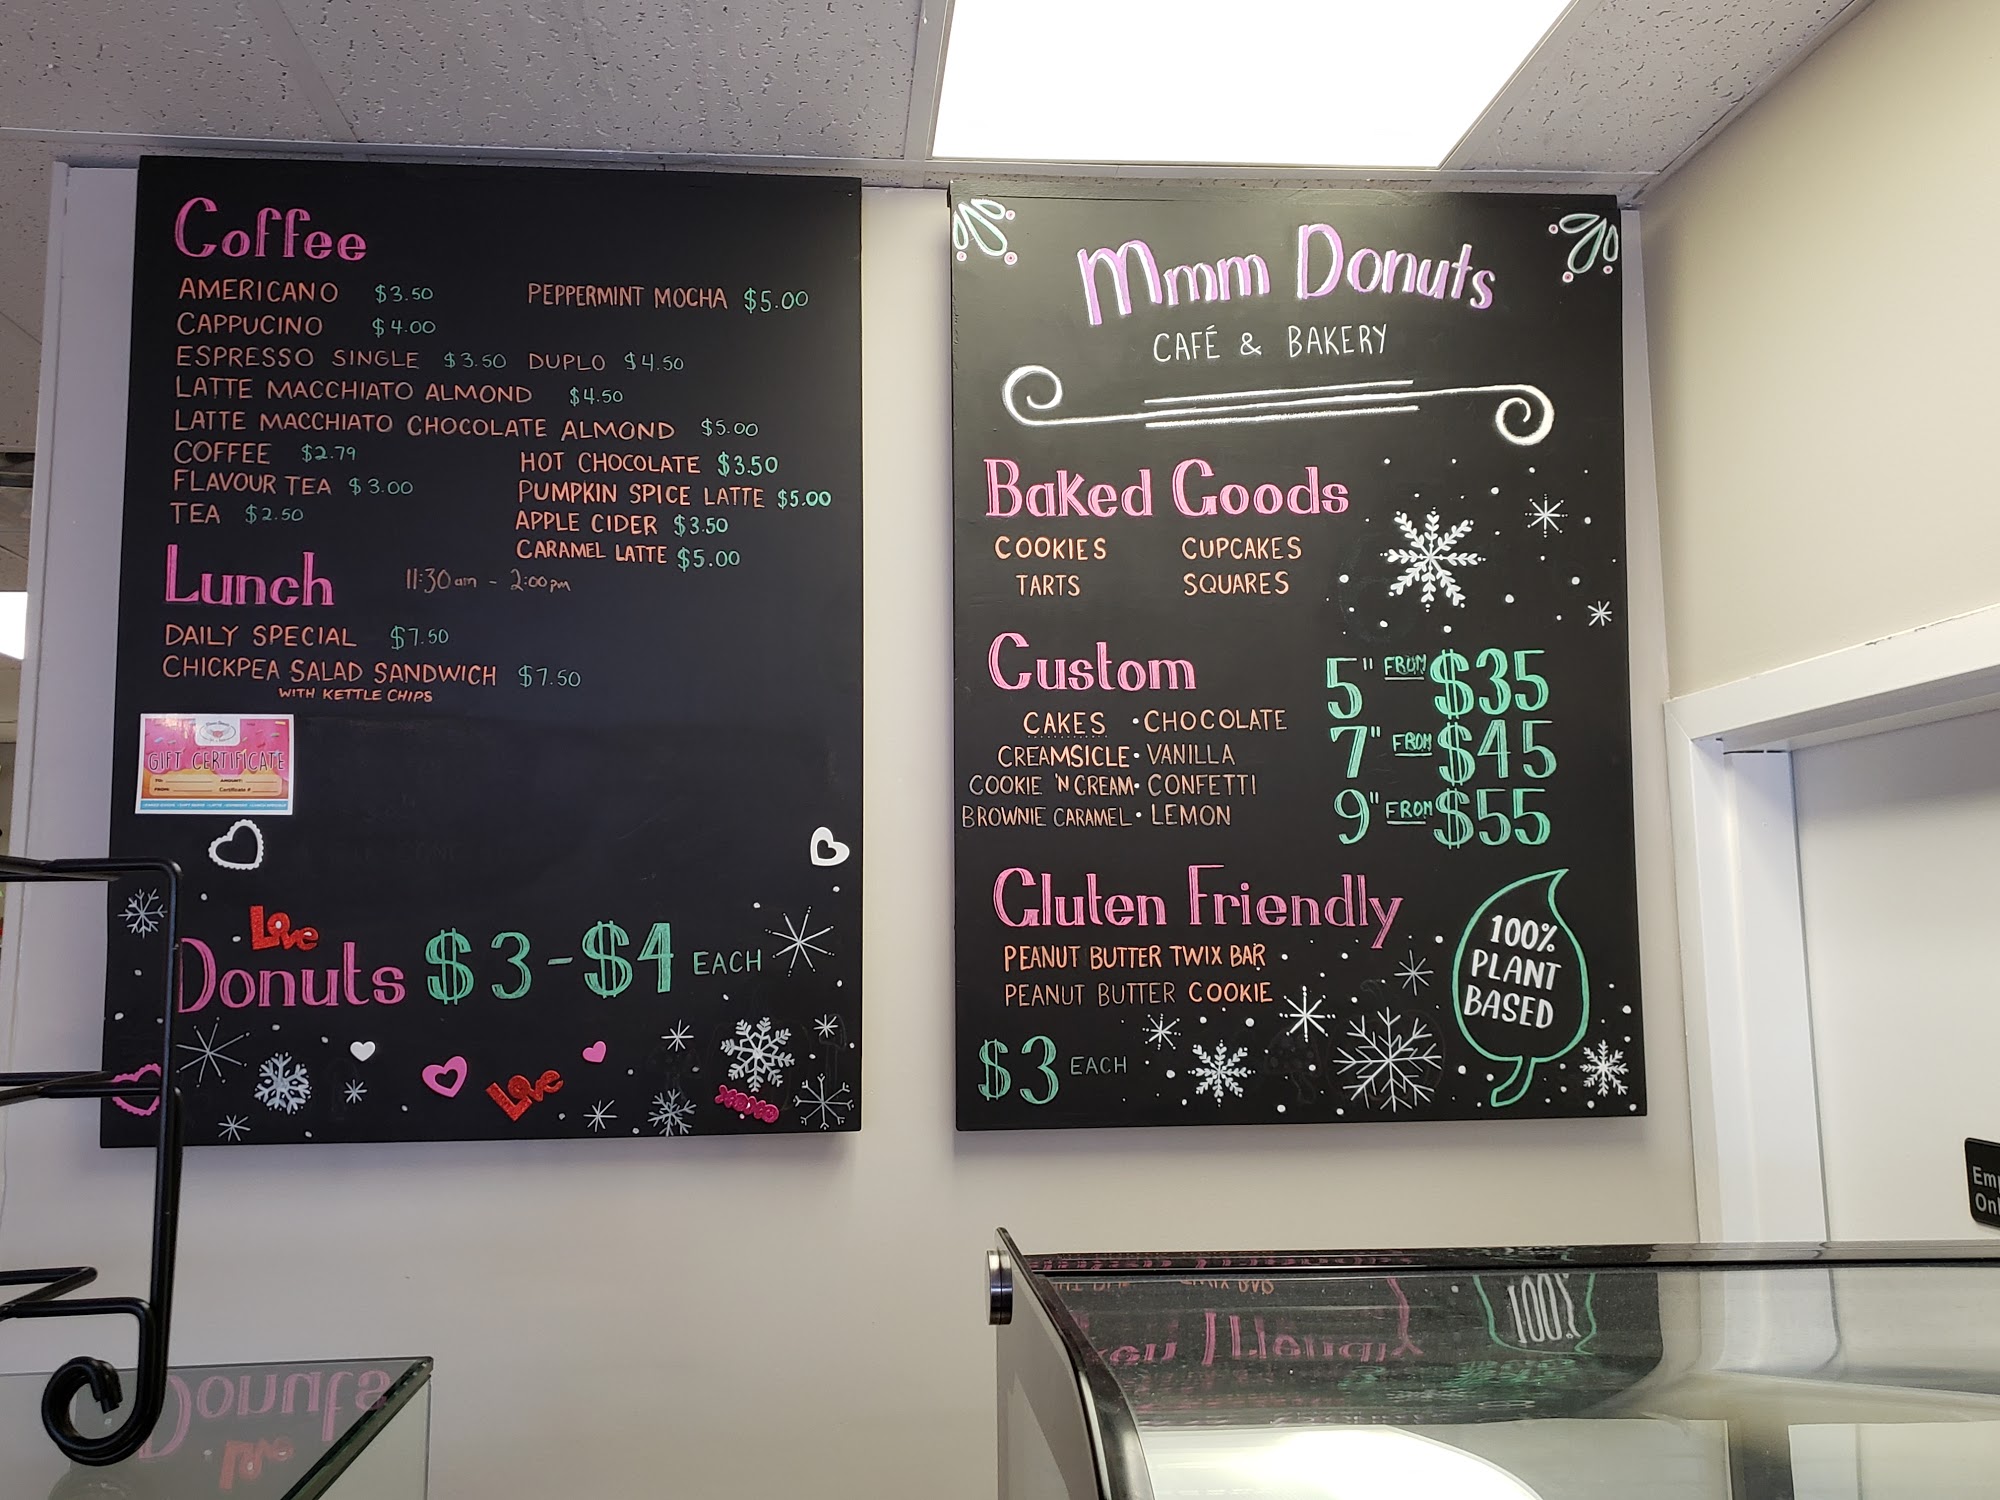 Coffee
AMERICANO $3.50 PEPPERMINT MOCHA $5.00
CAPPUCINO $4.00
ESPRESSO SINGLE $3.50 DUPLO $4.50
LATTE MACCHIATO ALMOND $4.50
LATTE MACCHIATO CHOCOLATE ALMOND $5.00
COFFEE $2.79
HOT CHOCOLATE $3.50
FLAVOUR TEA $3.00
PUMPKIN SPICE LATTE $5.00
TEA $2.50
APPLE CIDER $3.50
CARAMEL LATTE $5.00
Lunch 11:30am - 2:00pm
DAILY SPECIAL $7.50
CHICKPEA SALAD SANDWICH $7.50
WITH KETTLE CHIPS
GIFT CERTIFICATE
TO: AMOUNT:
FROM: Certificate #
Love
Donuts $3-$4 EACH
Love
XOXO
Mmm Donuts
CAFÉ & BAKERY
Baked Goods
COOKIES CUPCAKES
TARTS SQUARES
Custom
CAKES • CHOCOLATE
CREAMSICLE • VANILLA
COOKIE 'N CREAM • CONFETTI
BROWNIE CARAMEL • LEMON
5" FROM $35
7" FROM $45
9" FROM $55
Gluten Friendly
PEANUT BUTTER TWIX BAR
PEANUT BUTTER COOKIE
$3 EACH
100%
PLANT
BASED